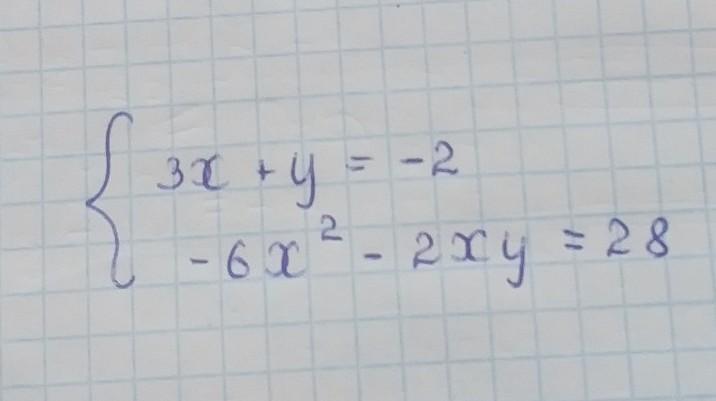 3x + y = -2
-6x² - 2xy = 28